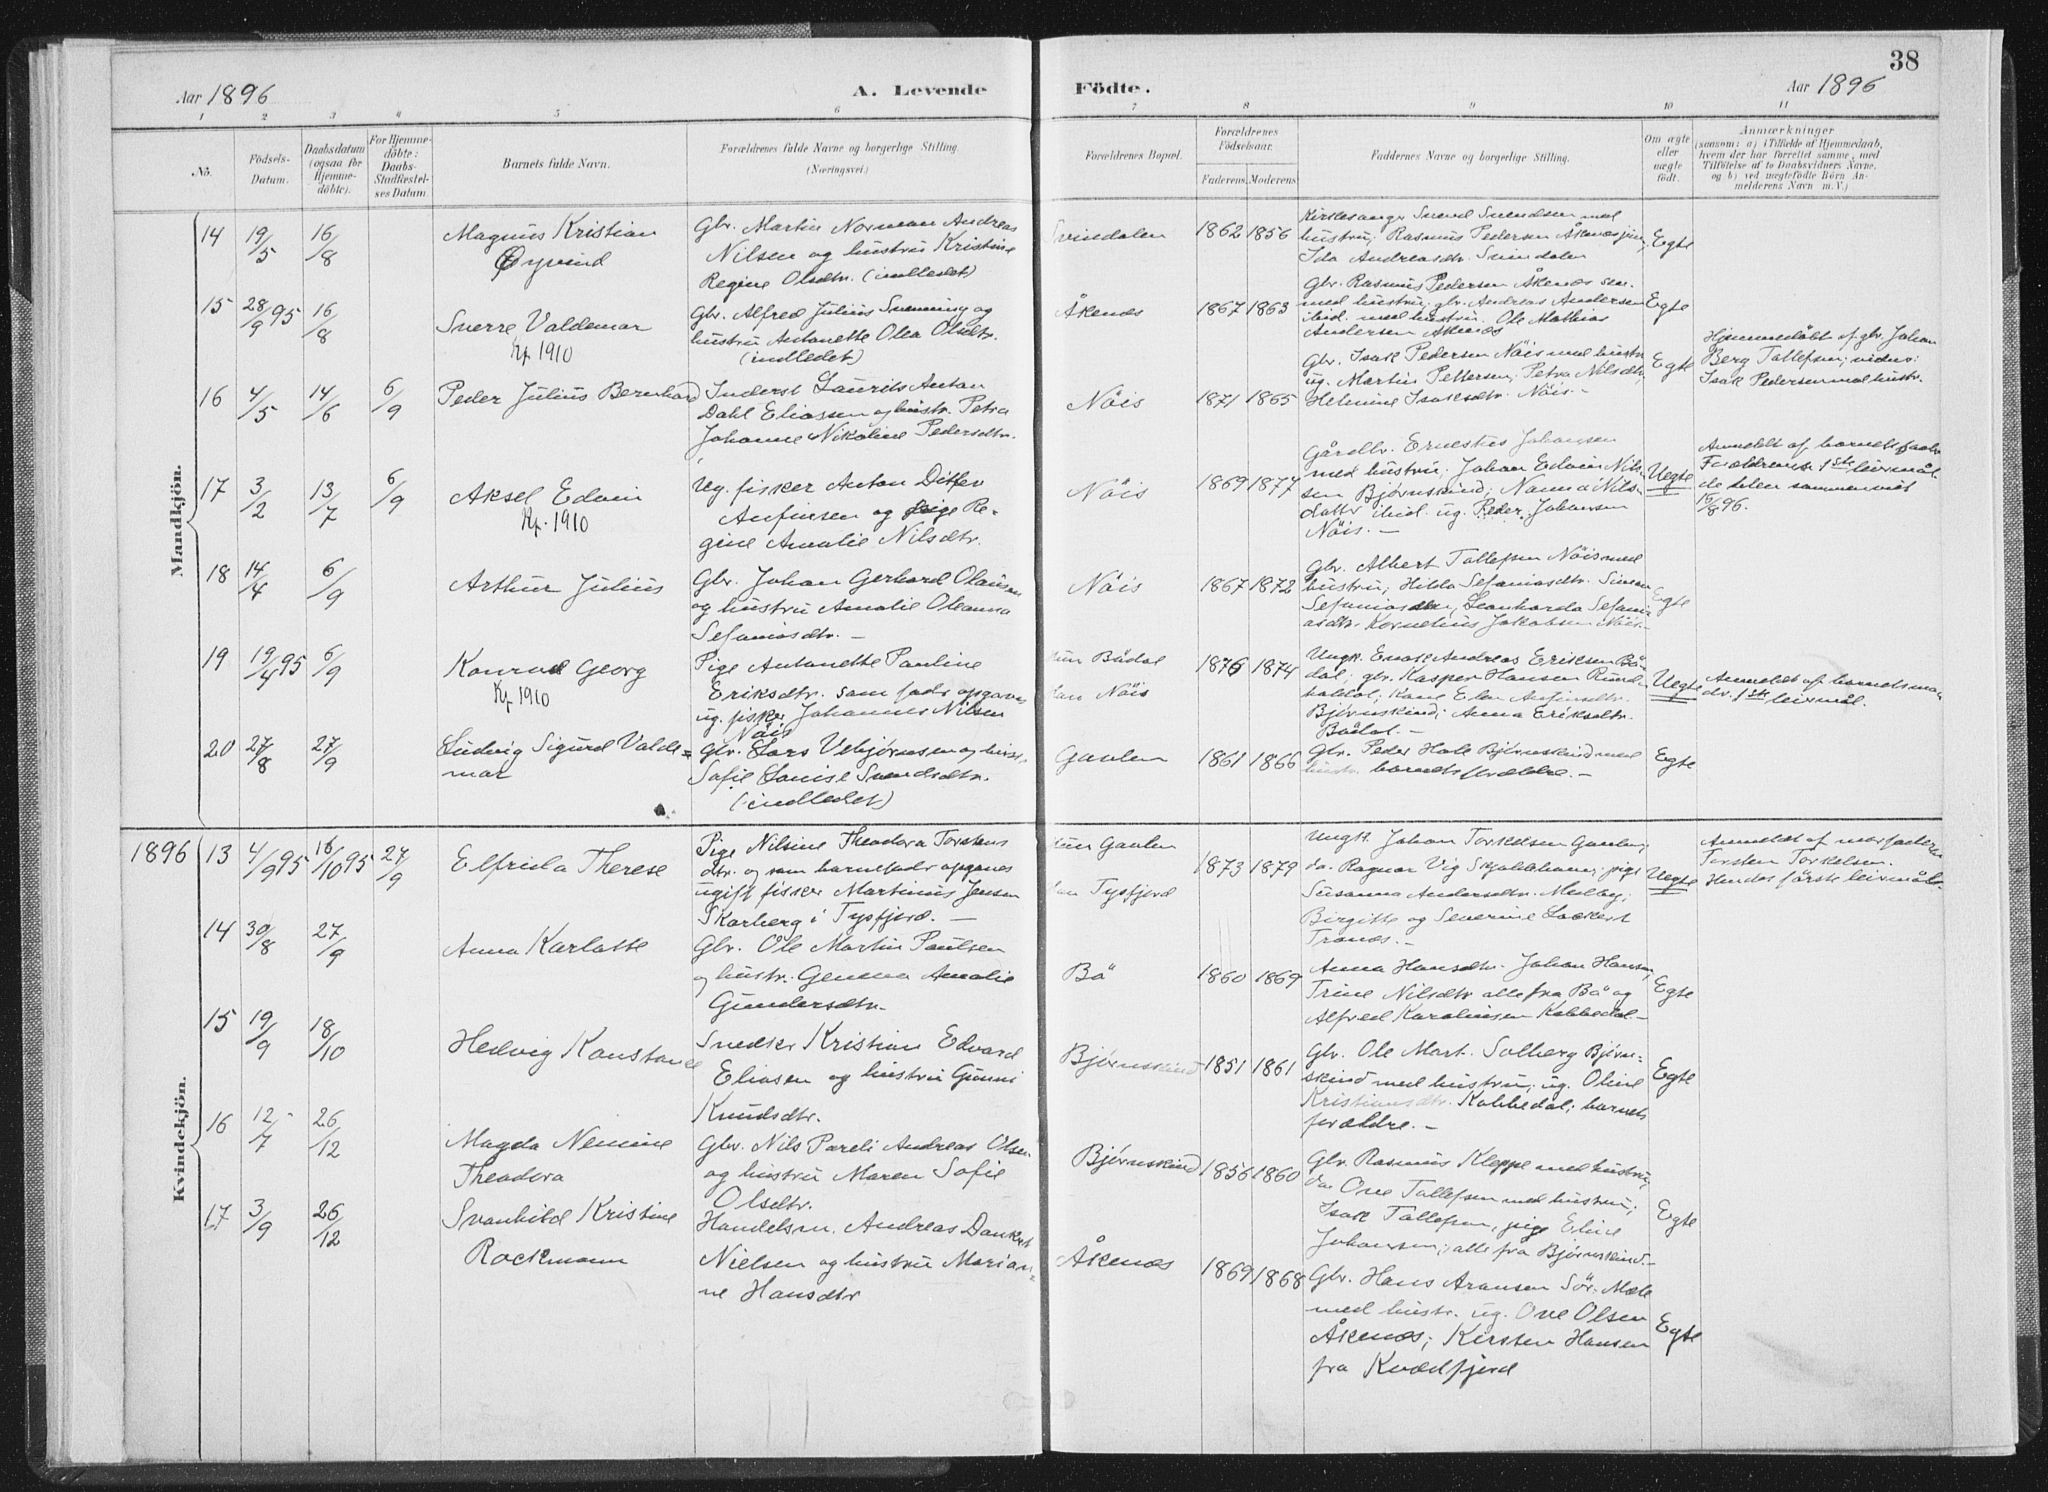 38
Aar 1896 A. Levende Födte. Aar 1896
1 2 3 4 5 6 7 8 9 10 11
No. Födsels-Datum. Daabsdatum (ogsaa for Hjemmedöbte). For Hjemmedöbte: Daabs-Stadfæstelses Datum. Barnets fulde Navn. Forældrenes fulde Navne og borgerlige Stilling. (Næringsvei.) Forældrenes Bopæl. Forældrenes Födselsaar. Faderens. Moderens. Faddernes Navne og borgerlige Stilling. Om ægte eller uægte født. Anmærkninger (saasom: a) i Tilfælde af Hjemmedaab, hvem der har forrettet samme, med Tilföielse af to Daabsvidners Navne. og b) ved uægtefödte Börn Anmelderens Navn m. V.)
Mandkjön.
14 19/5 16/8 Magnus Kristian
Øyvind
Gbr. Martin Norman Andreas
Nilsen og hustru Kristine
Regine Olsdtr. (indledet)
Svindalen 1862 1856
Kirkesanger Svend Svendsen med
hustru; Rasmus Pedersen Åkenæs jun;
Ida Andreasdtr. Svindalen
Egte
15 28/9 95 16/8 Sverre Valdemar
Kf. 1910
Gbr. Alfred Julius Svenning og
hustru Antonette Olea Olsdtr.
(indledet)
Åkenæs 1867 1863
Gbr. Rasmus Pedersen Åkenæs sen.
med hustru; gbr. Andreas Andersen
ibid. med hustru. Ole Mathias
Andersen Åkenæs
Egte
16 4/5 14/6 6/9 Peder Julius Bernhard
Inderst Laurits Anton
Dahl Eliassen og hustr. Petra
Johanne Nikoline Pedersdtr.
Nöis 1871 1865
Gbr. Isak Pedersen Nöis med hustr
ug. Martin Pettersen; Petra Nilsdtr,
Helmine Isaksdtr. Nöis.-
Egte
Hjemmedöbt af gbr. Johan
Berg Tollefsen; vidner:
Isak Pedersen med hustr.
17 3/2 13/7 6/9 Aksel Edvin
Kf. 1910
Ug. fisker Anton Ditlev
Anfinsen og pige Re-
gine Amalie Nilsdtr.
Nöis 1869 1877
Gårdbr. Ernestus Johansen
med hustru; Johan Edvin Nils-
sen Bjørnskind; Nanna Nils-
datter ibid. ug. Peder Johansen
Nöis.-
Uegte
Anmeldt af barnets fader
Forældrenes 1ste leiermål
de telen sammenviet
16/8 96.
18 14/4 6/9 Arthur Julius
Gbr. Johan Gerhard Olausen
og hustru Amalie Oleanna
Sefaniasdtr.-
Nöis 1867 1872
Gbr. Albert Tollefsen Nöis med
hustru; Hilda Sefaniasdtr. Simon
Sefaniassen, Leonharda Sefani-
asdtr. Kornelius Jakobsen Nöis.-
Egte
19 19/4 95 6/9 Konrad Georg
Kf 1910
Pige Antonette Pauline
Eriksdtr. som fader opgaves
ug. fisker Johannes Nilsen
Nöis
hun Bådal
han Nöis
1876 1874
Ungk. Enok Andreas Eriksen Bå-
dal; gbr. Kasper Hansen Rund-
Bjørnskind; Anna Eriksdtr.
Bådal.-
Uegte
Anmeldt af barnets mo-
der. 1ste leiermål.
20 27/8 27/9 Ludvig Sigurd Valde=
mar
Gbr. Lars Vebjørnsen og hust.
Sofie Louise Svendsdtr.
(indledet)
Gavlen 1861 1866
Gbr. Peder Hole Bjørnskind med
hustr. barnets forældre.-
Egte
Kvindekjön.
1896 13 4/9 95 16/10 95 27/9 Elfrida Therese
Pige Nilsine Theodora Torstens
dtr. og som barnefader opgaves
ugift fisker Martinus Jensen
Skarberg i Tysfjord.-
hun Gavlen
han Tysfjord
1873 1879
Ungk. Johan Torkelsen Gavlen;
do. Ragnar Vig Skjoldehavn; pige
Susanna Andersdtr. Melby;
Birgitte og Severine Lockert
Tranæs.-
Uegte
Anmeldt af morfaderen
Torsten Torkelsen.
Hendes förste leiermål.
14 30/8 27/9 Anna Karlotte
Gbr. Ole Martin Paulsen
og hustr. Gemma Amalie
Gundersdtr.
Bö 1860 1869
Anna Hansdtr. Johan Hansen,
Trine Nilsdtr alle fra Bö og
Alfred Karolinsen Kobbedal.-
Egte
15 19/9 18/10 Hedvig Konstance
Snedker Kristian Edvard
Eliasen og hustru Gunni
Knudsdtr.
Bjørnskind 1851 1861
Gbr. Ole Mart. Solberg Bjørn=
skind med hustru; ug. Oline
Kristiansdtr. Kobbedal; barnets
forældre.-
Egte
16 12/7 26/12 Magda Nemine
Theodora
Gbr. Nils Pareli Andreas Olsen
og hustru Maren Sofie
Olsdtr.
Bjørnskind 1856 1860
Gbr. Rasmus Kleppe med hustru;
do Ove Tollefsen med hustru;
Isak Tollefsen, pige Eline
Johansen; alle fra Bjørnskind.-
Egte
17 3/9 26/12 Svanhild Kristine
Rockmann
Handelsm. Andreas Dankert
Nielsen og hustru Marian=
ne Hansdtr
Åkenæs 1869 1868
Gbr. Hans Aronsen Sör-Mæle
med hustr. ug. Ove Olsen
Åkenæs; Kirsten Hansen
fra Kvædfjord
Egte